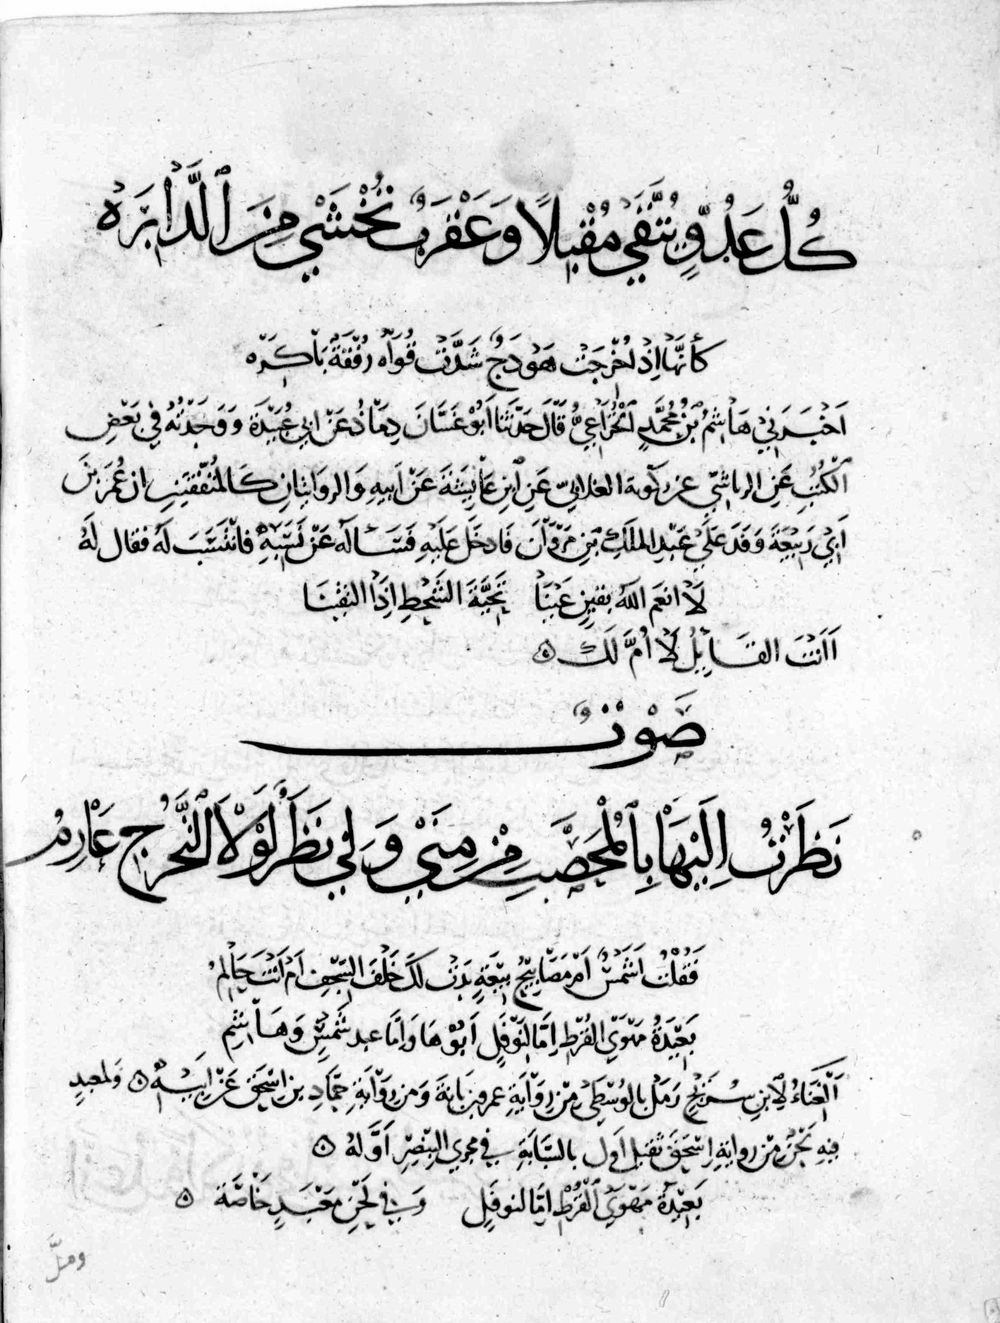 كُلُّ عَدُوٍّ يُتَّقَى مُقْبِلًا وَعَقْرَبٌ تُخْشَى مِنَ الدَّابِرَهْ
كأنَّها إذ أُخْرِجَتْ هَوْدَجٌ شَدَّتْ قُوَاهُ رُفْقَةٌ بَاكِرَهْ
اَخْبَرَنِي هَاشِمُ بْنُ مُحَمَّدٍ الْخُزَاعِيُّ قَالَ حَدَّثَنَا اَبُو غَسَّانَ دِمَاذُ عَنْ ابي عُبَيْدَة وَوَجَدْتُهُ فِي بَعْضِ
الْكُتُبِ عَنِ الرياشِيّ عن زكويه العلائيّ عَنِ ابْنِ عَائِشَةَ عَنْ اَبِيهِ وَالروايتان كَالمُتَّفِقَتَينِ ان عُمَرَ بْنَ
اَبِي رَبِيعَة وَفَدَ عَلَى عَبْدِ الملك بْنِ مَرْوَان فَادخلَ عَلَيْهِ فَسَاَلَهُ عَنْ نَسَبِهِ فَانْتَسَبَ لَهُ فقال لَهُ
لَا انعَمَ اللهُ بقينٍ عَيْنَا تَحِيَّةَ السُّخْطِ اِذَا التقَيْنَا
اَاَنْتَ القَايِلُ لَا اُمَّ لَكَ
صَوْتٌ
نَظَرْتُ اِلَيْهَا بِالْمُحَصَّبِ مِنْ مِنًى وَلِي نَظَرٌ لَوْلَا التَّحَرُّجُ عَارِمُ
فَقُلْتُ اَشَمْسٌ اَمْ مَصَابِيحُ بِيعَةٍ بَدَتْ لَكَ خَلْفَ السِّجْفِ اَمْ اَنْتَ حَالِمُ
بَعِيدَةُ مَهْوَى القُرْطِ اِمَّا لنَوْفَلٍ اَبُوْهَا وَاِمَّا عبد شَمْسٍ وَهَاشِمِ
اَلْغِنَاءُ لِابنِ سُرَيْجٍ رَمَلٌ بالوُسْطَى مِنْ رِوَايَةِ عمرو بن بَانَةَ وَمن رِوَايَةِ حَمَّاد بن اِسْحَق عَنْ اَبِيهِ وَلمعبدٍ
فِيهِ لَحْنٌ مِنْ رِوايةِ اِسْحَق ثَقِيل اَول بالسَّبَّابَةِ فِي مجرى البِنْصِرِ اَوَّلهُ
بَعِيْدَة مَهْوَى القُرْطِ اِمَّا لنوفَلٍ وَفي لَحْنِ مَعْبَدٍ خَاصَّة